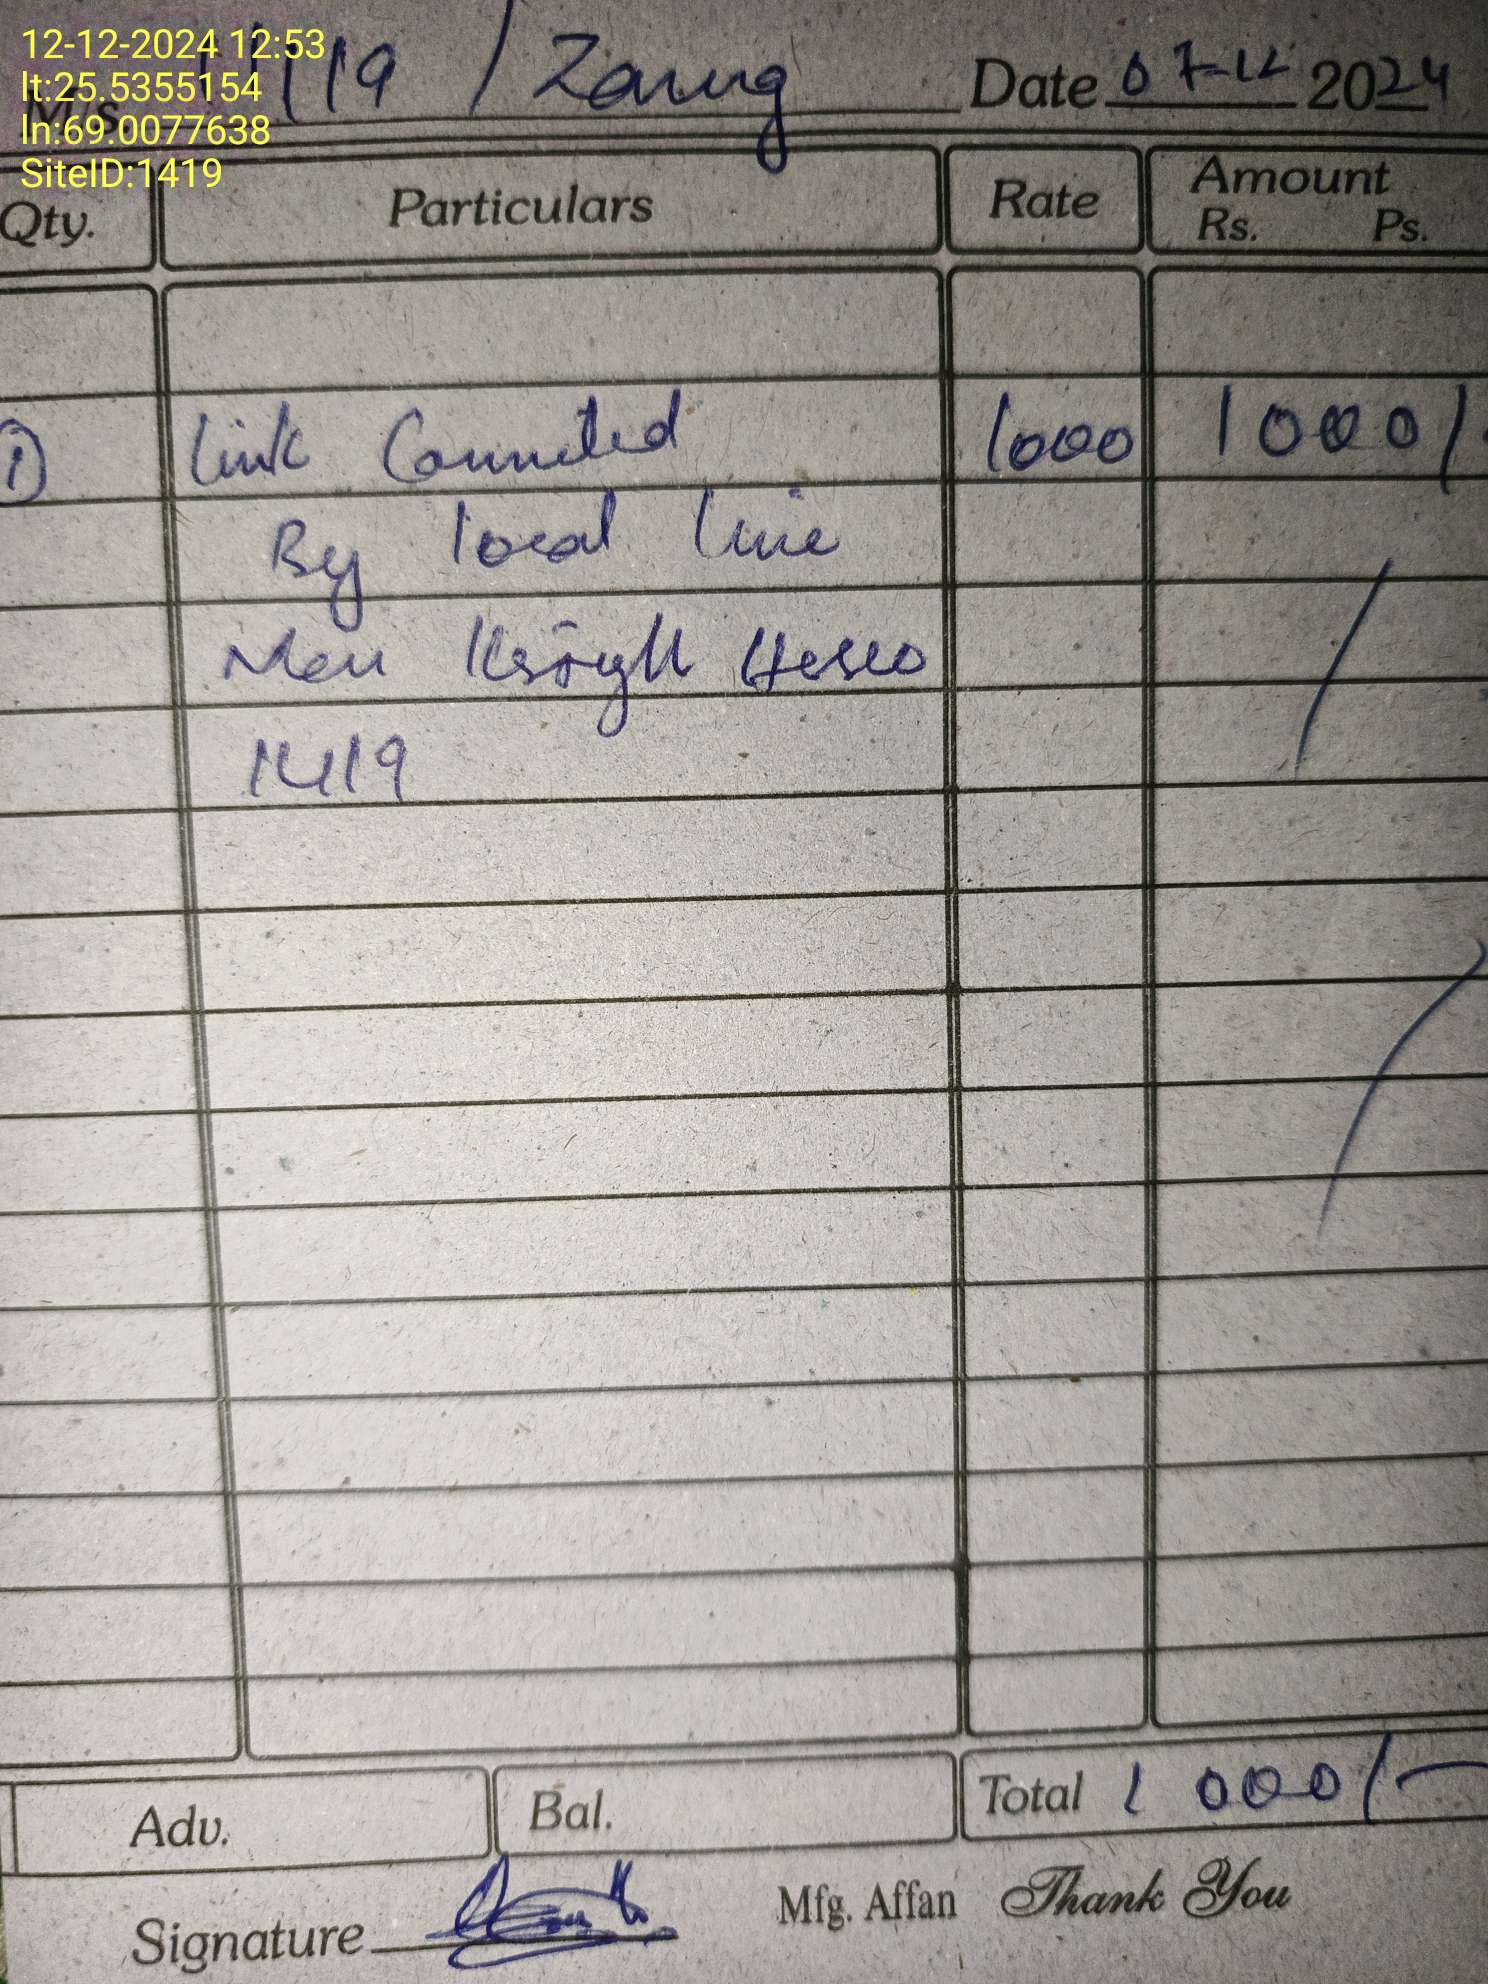 12-12-2024 12:53
lt:25.5355154
ln:69.0077638
SiteID:1419
M/s. 1419 / Zaung Date 07-12 2024
Qty. Particulars Rate Amount
Rs. Ps.
1) Link Connected 1000 1000/-
By local line
Men Hesco
1419
Adv. Bal. Total 1000/-
Signature Mfg. Affan Thank You